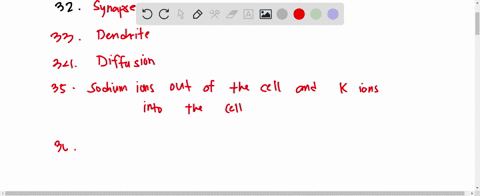 32. Synapse
33. Dendrite
34. Diffusion
35. Sodium ions out of the cell and K ions
into the cell
36.